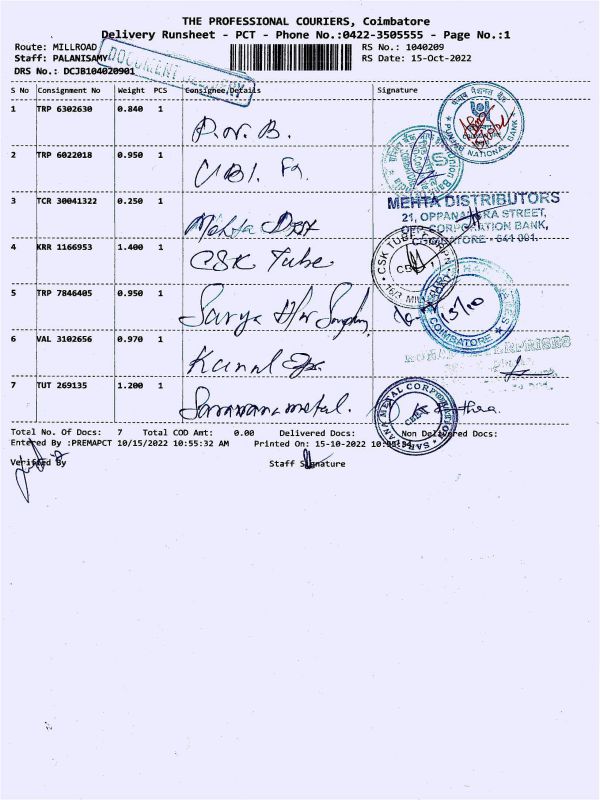 THE PROFESSIONAL COURIERS, Coimbatore
Delivery Runsheet - PCT - Phone No.:0422-3505555 - Page No.:1
Route: MILLROAD RS No.: 1040209
Staff: PALANISAMY RS Date: 15-Oct-2022
DOCUMENT DELIVERY
DRS No.: DCJB104020901
S No Consignment No Weight PCS Consignee,Details Signature
1 TRP 6302630 0.840 1 P.N.B.
PUNJAB NATIONAL BANK
2 TRP 6022018 0.950 1 UBI.
3 TCR 30041322 0.250 1 Mehta Dist
MEHTA DISTRIBUTORS
21, OPPANAKARA STREET,
OPP CORPORATION BANK,
COIMBATORE - 641 001.
4 KRR 1166953 1.400 1 CSK Tube
CSK TUBE CORPN
5 TRP 7846405 0.950 1 Surya
15/10
COIMBATORE
6 VAL 3102656 0.970 1
7 TUT 269135 1.200 1 Saravana metal.
METAL CORPORATION
Total No. Of Docs: 7 Total COD Amt: 0.00 Delivered Docs: Non Delivered Docs:
Entered By :PREMAPCT 10/15/2022 10:55:32 AM Printed On: 15-10-2022
Verified By Staff Signature